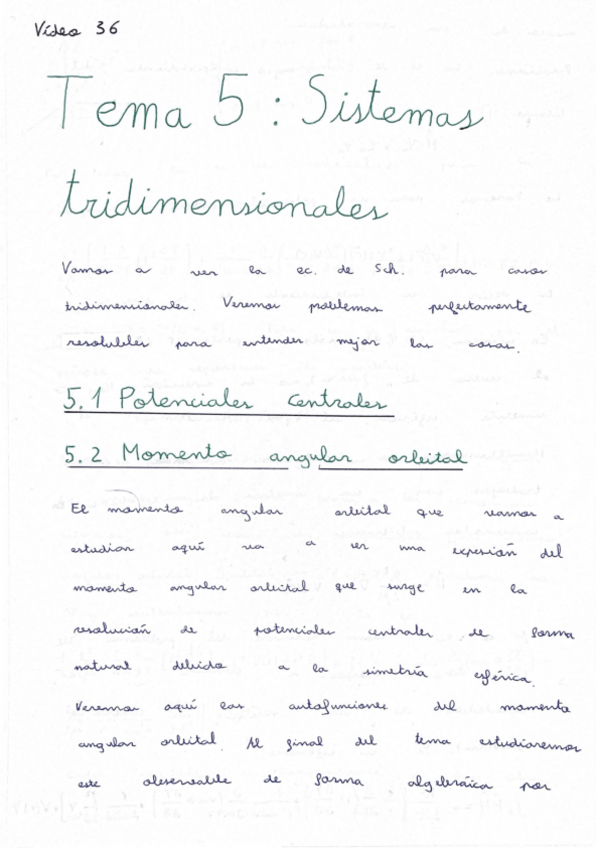 Vídeo 36
Tema 5 : Sistemas
tridimensionales
Vamos a ver la ec. de Sch. para casos
tridimensionales. Veremos problemas perfectamente
resolubles para entender mejor las cosas.
5.1 Potenciales centrales
5.2 Momento angular orbital
El momento angular orbital que vamos a
estudiar aquí va a ser una expresión del
momento angular orbital que surge en la
resolución de potenciales centrales de forma
natural debido a la simetría esférica.
Veremos aquí las autofunciones del momento
angular orbital. Al final del tema estudiaremos
este observable de forma algebráica por